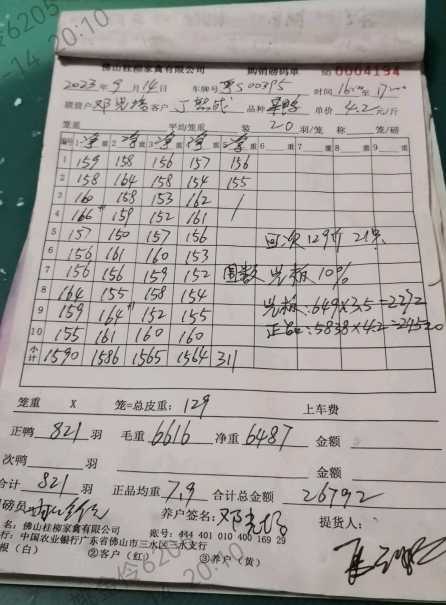 佛山桂柳家禽有限公司 购销磅码单 0004194
2023年9月14日 车牌号 粤S00395 时间
客户 品种 单价 4.2元/斤
笼重 平均笼重 装 20 羽/笼 称 笼/磅
1 159 158 156 157 156
2 158 164 158 154 155
3 160 158 153 162 /
4 166 159 152 161
5 157 150 157 156
6 156 161 160 153
7 156 156 159 152
8 164 155 158 154
9 159 164 152 155
10 155 161 160 160
小计 1590 1586 1565 1564 311
129斤
10%
649×3.5=2272
5838×4.2=24520
笼重 X 笼=总皮重: 129 上车费
正鸭 821 羽 毛重 6616 净重 6487 金额
次鸭 羽 金额
合计 821 羽 正品均重 7.9 合计总金额 26792
磅员 养户签名: 提货人:
名: 佛山桂柳家禽有限公司 账号: 444 401 010 400 169 29
行: 中国农业银行广东省佛山市三水区三水支行
根(白) ②客户(红) ③养户(黄)